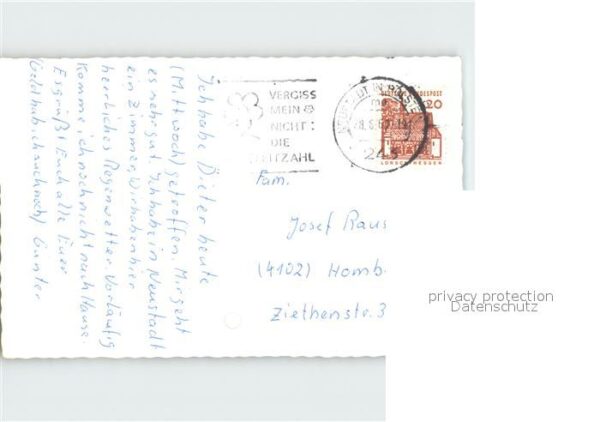 Ich habe Dieter heute
(Mittwoch) getroffen. Mir geht
es sehr gut. Ich habe in Neustadt
ein Zimmer. Wir haben hier
herrliches Regenwetter. Vorläufig
komme ich noch nicht nach Hause.
Es grüßt Euch alle Euer
Günter
Geld hab ich auch noch!
VERGISS
MEIN
NICHT:
DIE
LEITZAHL
DEUTSCHE BUNDESPOST
20
LORSCH HESSEN
Fam.
Josef Raus
(4102) Homb
Ziethenstr. 3
privacy protection
Datenschutz